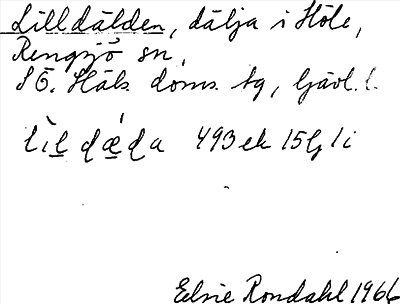 Lilldälden, dälja i Höle,
Rengsjö sn,
SÖ. Häls. doms. tg, Gävl. l.
493 ek 15 G l i
Elsie Rondahl 1966